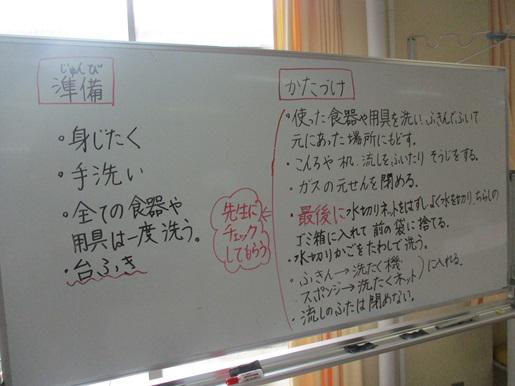 じゅんび
準備
・身じたく
・手洗い
・全ての食器や
用具は一度洗う。
・台ふき
先生に
チェック
してもらう
かたづけ
・使った食器や用具を洗い、ふきんでふいて
元にあった場所にもどす。
・こんろや机、流しをふいたり そうじをする。
・ガスの元せんを閉める。
・最後に水切りネットをはずし、よく水を切り、ちらしの
ゴミ箱に入れて前の袋に捨てる。
・水切りかごをたわしで洗う。
・ふきん→洗たく機
スポンジ→洗たくネット)に入れる。
・流しのふたは閉めない。